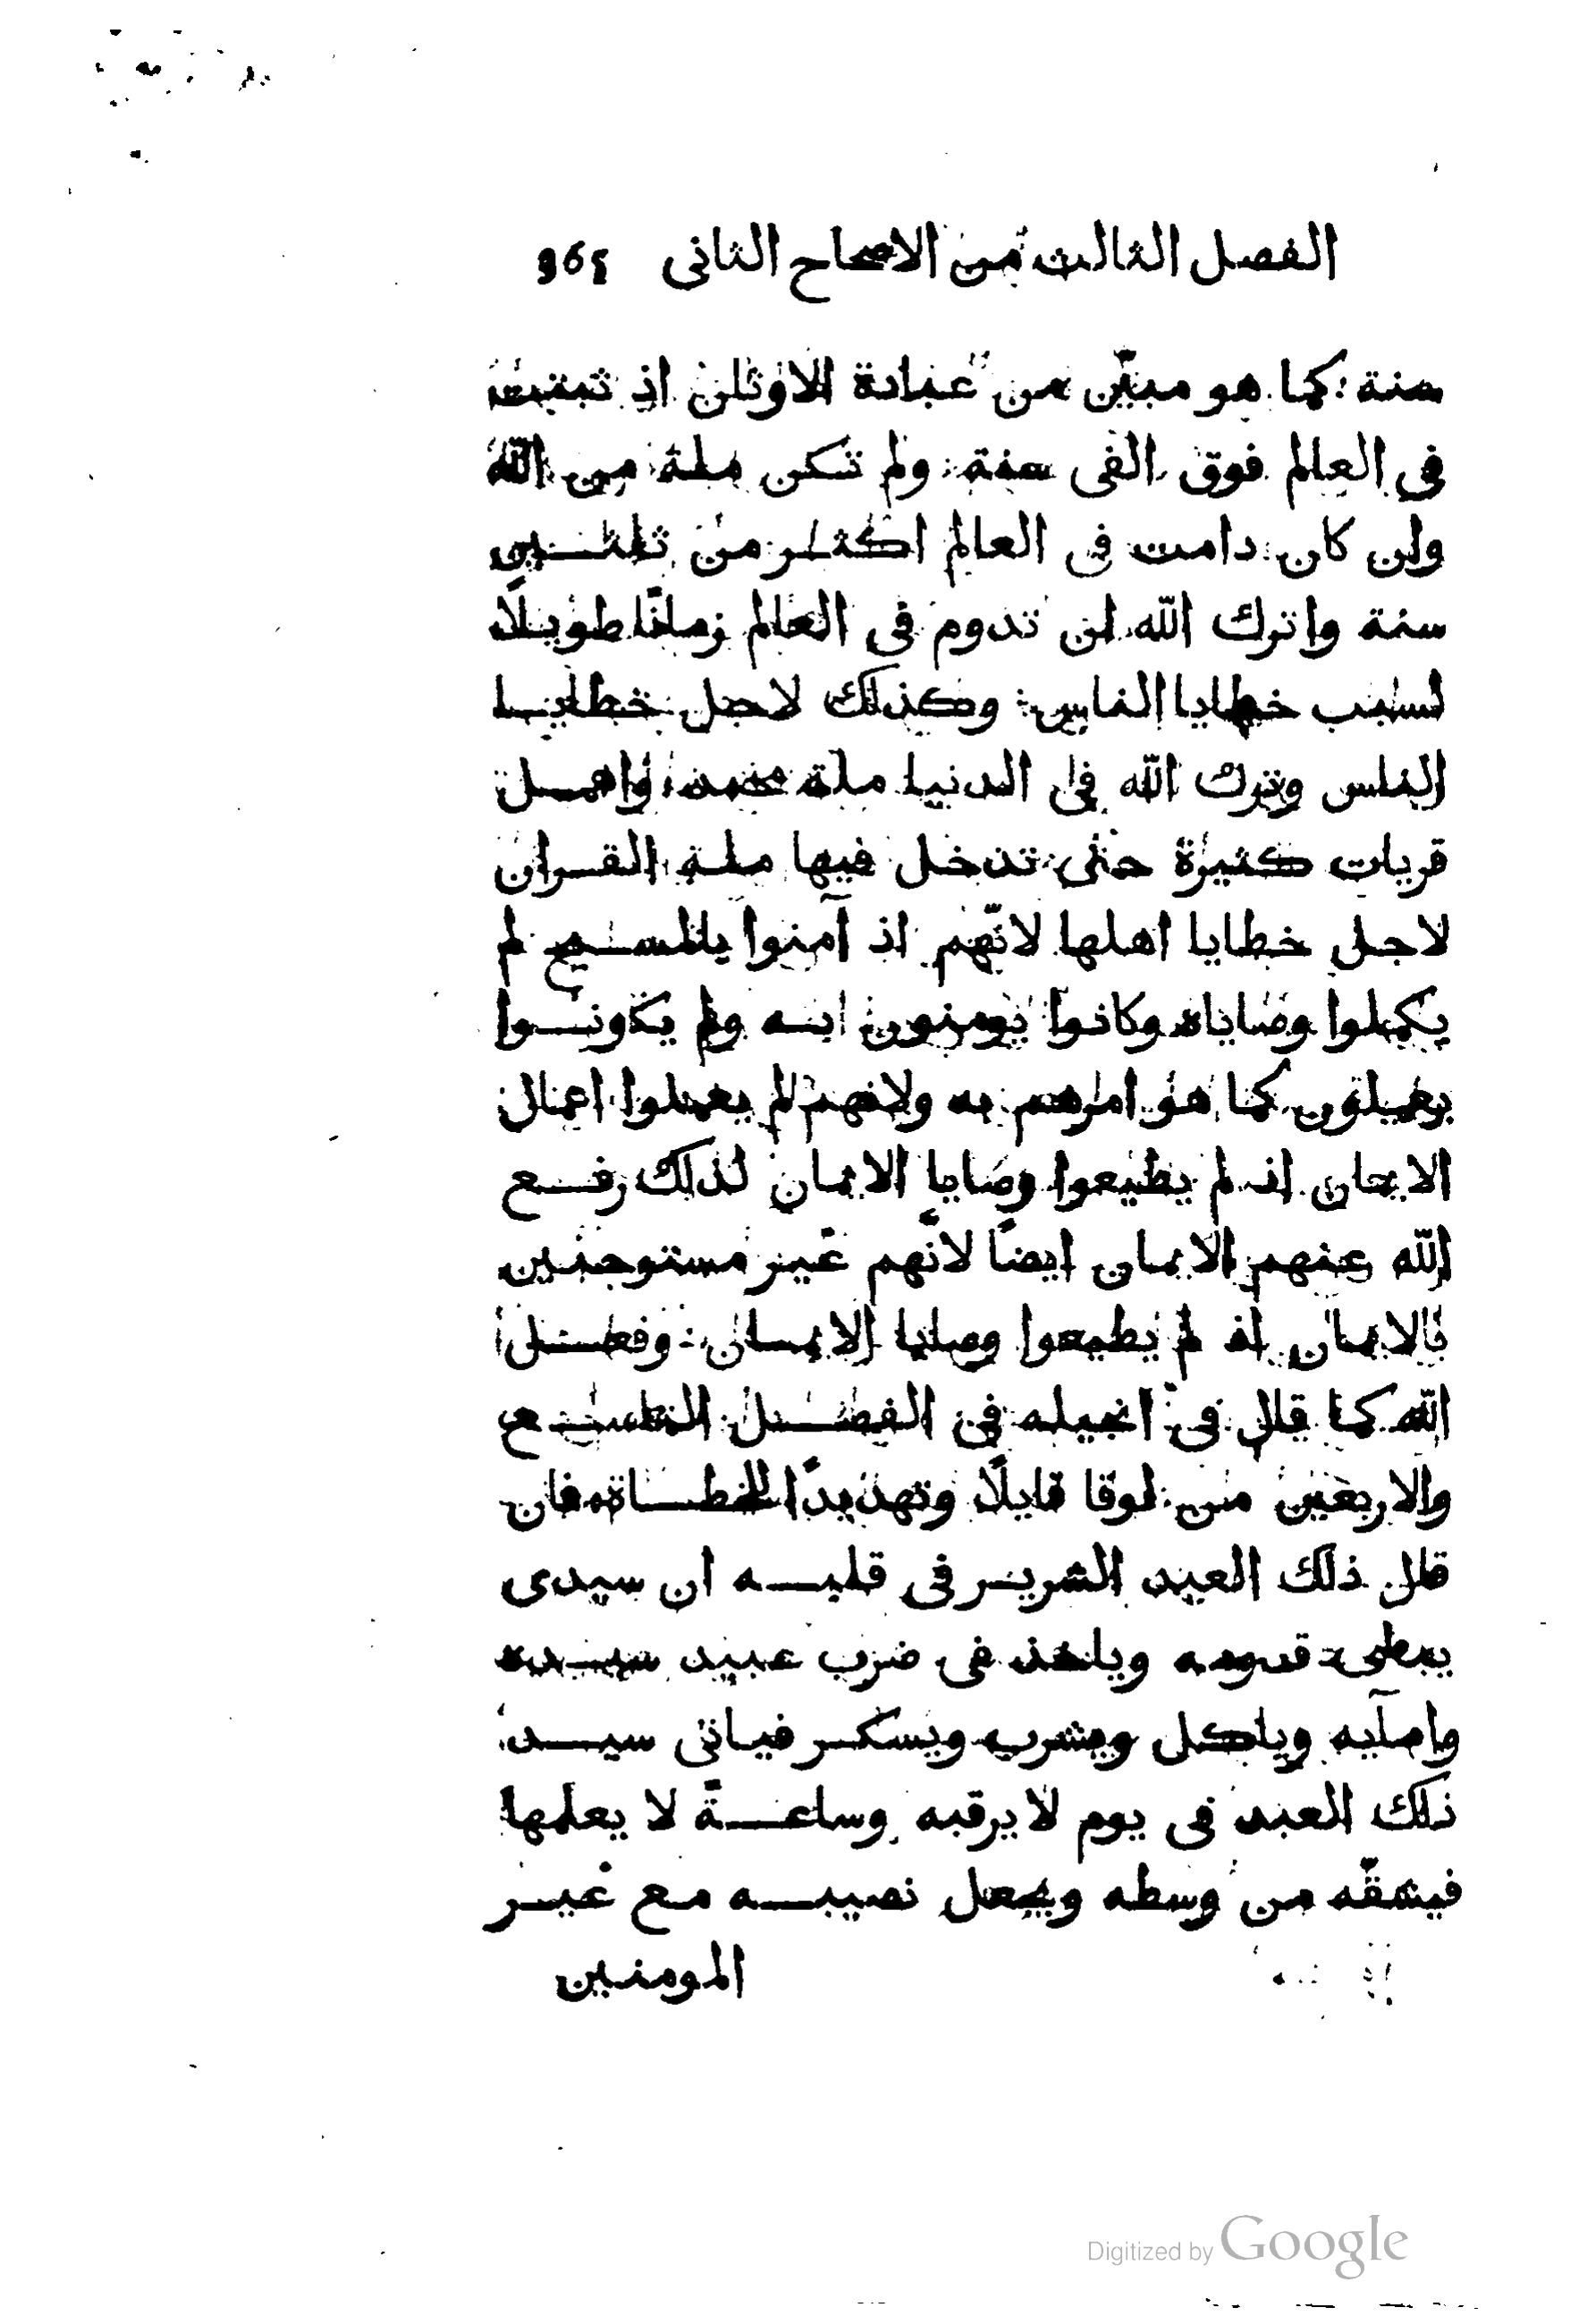 الفصل الثالث من الاصحاح الثانى 965
سنة : كما هو مبيّن من عبادة الاوثان اذ ثبتت
فى العالم فوق الفى سنة : ولم تكن ملة من اللّه
ولن كان دامت فى العالم اكثر من ثلثين
سنة واترك اللّه لن تدوم فى العالم زمانًا طويلًا
لسبب خطايا الناس : وكذلك لاجل خطايا
الناس وترك اللّه فى الدنيا ملة محمد واهمل
قريات كثيرة حتى تدخل فيها ملة القران
لاجل خطايا اهلها لانّهم اذ آمنوا بالمسيح لم
يكملوا وصاياه وكانوا يومنون ابنه ولم يكونوا
يعملون كما هو امرهم به ولانهم لم يعملوا اعمال
الايمان اذ لم يطيعوا وصايا الايمان لذلك رفع
اللّه عنهم الايمان ايضًا لانّهم غير مستوجبين
بالايمان اذ لم يطيعوا وصايا الايمان : وفعل
اللّه كما قال فى انجيله فى الفصل التاسع
والاربعين من لوقا قايلًا وتهديدًا للخطاة فان
قال ذلك العبد الشرير فى قلبه ان سيدى
يبطى قدومه وياخذ فى ضرب عبيد سيده
وامآيه وياكل ويشرب ويسكر فياتى سيد
ذلك العبد فى يوم لا يرقبه وساعةً لا يعلمها
فيشقّه من وسطه ويجعل نصيبه مع غير
المومنين
Digitized by Google